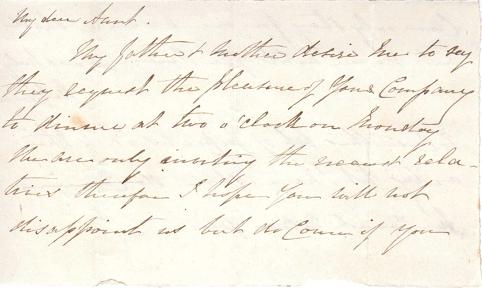 My dear Aunt.
My father & Mother desire me to say
they request the pleasure of Your Company
to dinner at two o'clock on Monday
We are only inviting the nearest rela-
tives therefore I hope You will not
disappoint us but do Come if You